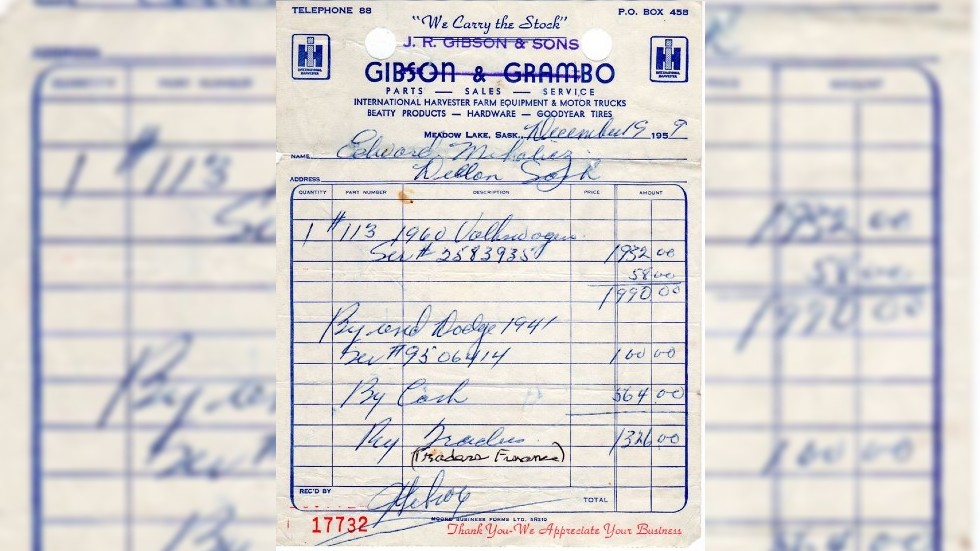 TELEPHONE 88 P.O. BOX 458
"We Carry the Stock"
J. R. GIBSON & SONS
GIBSON & GRAMBO
PARTS — SALES — SERVICE
INTERNATIONAL HARVESTER FARM EQUIPMENT & MOTOR TRUCKS
BEATTY PRODUCTS — HARDWARE — GOODYEAR TIRES
MEADOW LAKE, SASK., December 19 1959
NAME Edward
ADDRESS Sask
QUANTITY PART NUMBER DESCRIPTION PRICE AMOUNT
1 #113 1960 Volkswagen
Ser # 2583935 1932 00
58 00
1990 00
By Dodge 1941
Ser #9506414 100 00
By Cash 564 00
By Traders 1326 00
(Traders Finance)
REC'D BY TOTAL
MOORE BUSINESS FORMS LTD.
17732 Thank You-We Appreciate Your Business